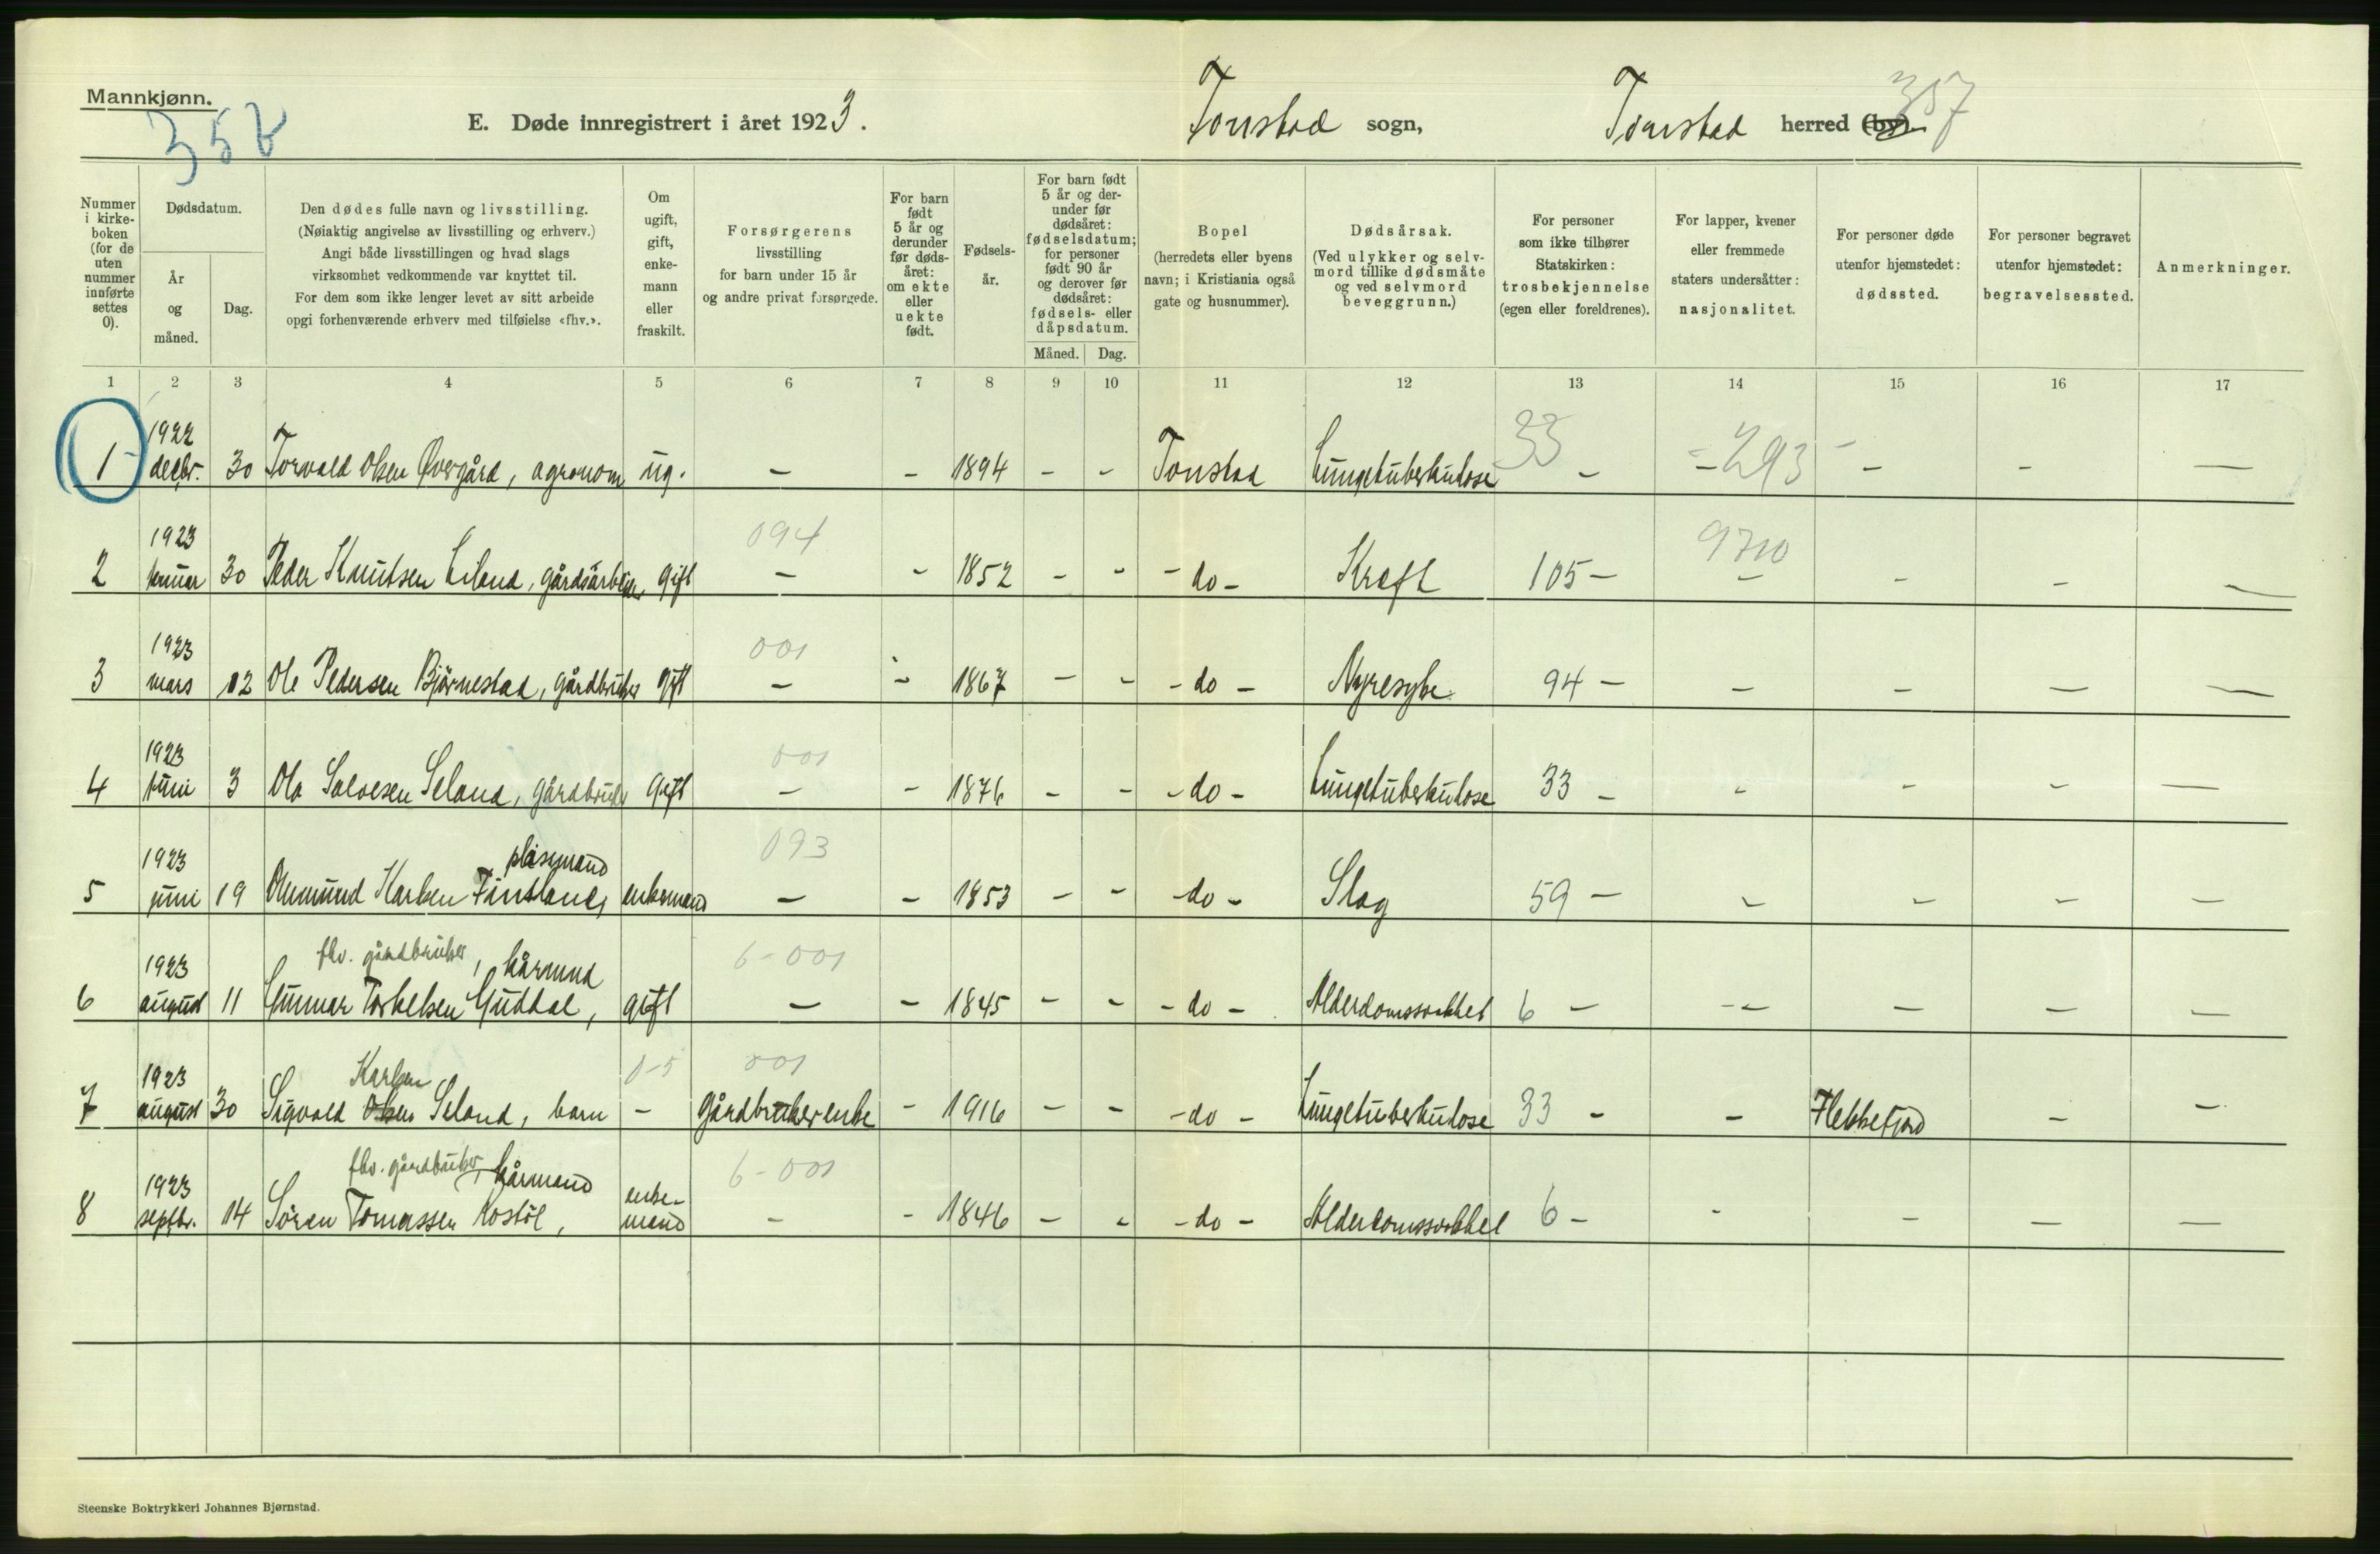 Mannkjønn.
358
E. Døde innregistrert i året 1923.
Tonstad sogn,
Tonstad herred (by).
357
Nummer i kirke-boken (for de uten nummer innførte settes 0).
Dødsdatum.
År og måned.
Dag.
Den dødes fulle navn og livsstilling.
(Nøiaktig angivelse av livsstilling og erhverv.)
Angi både livsstillingen og hvad slags
virksomhet vedkommende var knyttet til.
For dem som ikke lenger levet av sitt arbeide
opgi forhenværende erhverv med tilføielse «fhv.».
Om ugift, gift, enke-mann eller fraskilt.
Forsørgerens
livsstilling
for barn under 15 år
og andre privat forsørgede.
For barn født 5 år og derunder før døds-året: om ekte eller uekte født.
Fødsels-år.
For barn født 5 år og der-under før dødsåret: fødselsdatum; for personer født 90 år og derover før dødsåret: fødsels- eller dåpsdatum.
Måned. Dag.
Bopel
(herredets eller byens
navn; i Kristiania også
gate og husnummer).
Dødsårsak.
(Ved ulykker og selv-
mord tillike dødsmåte
og ved selvmord
beveggrunn.)
For personer
som ikke tilhører
Statskirken:
trosbekjennelse
(egen eller foreldrenes).
For lapper, kvener
eller fremmede
staters undersåtter:
nasjonalitet.
For personer døde
utenfor hjemstedet:
dødssted.
For personer begravet
utenfor hjemstedet:
begravelsessted.
Anmerkninger.
1 2 3 4 5 6 7 8 9 10 11 12 13 14 15 16 17
1922 33 293
1 decbr. 30 Torvald Olsen Øvergård, agronom ug. - - 1894 - - Tonstad Lungetuberkulose - - - - -
1923 094 9710
2 januar 30 Peder Knutsen Eiland, gårdsarbeider gift - - 1852 - - - do - Kreft 105 - - - - -
1923 001
3 mars 12 Ole Pedersen Bjørnestad, gårdbruker gift - - 1867 - - - do - Nyresyke 94 - - - - -
1923 001
4 juni 3 Ola Salvesen Seland, gårdbruker gift - - 1876 - - - do - Lungetuberkulose 33 - - - - -
1923 plasmand 093
5 juni 19 Aamund Karlsen Fintland, enkemand - - 1853 - - - do - Slag 59 - - - - -
1923 fhv. gårdbruker, kårmand 6-001
6 august 11 Gunnar Torkelsen Guddal, gift - - 1845 - - - do - Alderdomssvakhet 6 - - - - -
1923 Karlsen 0-5 001
7 august 30 Sigvald Olsen Seland, barn - Gårdbrukerenke - 1916 - - - do - Lungetuberkulose 33 - - Flekkefjord - -
1923 fhv. gårdbruker, kårmand enke- 6-001
8 septbr. 14 Sören Tomassen Kostöl, mand - - 1846 - - - do - Alderdomssvakhet 6 - - - - -
Steenske Boktrykkeri Johannes Bjørnstad.